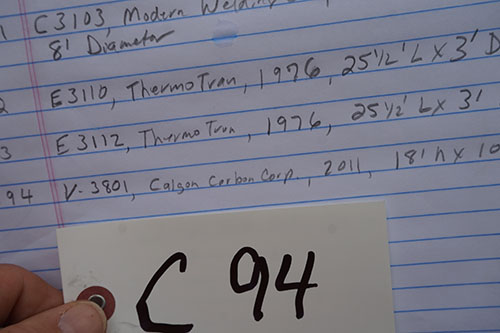 1 C3103, Modern Welding
8' Diameter
2 E3110, ThermoTran, 1976, 25 1/2' L x 3' D
3 E3112, ThermoTran, 1976, 25 1/2' L x 3'
94 V-3801, Calgon Carbon Corp., 2011, 18' h x 10
C 94